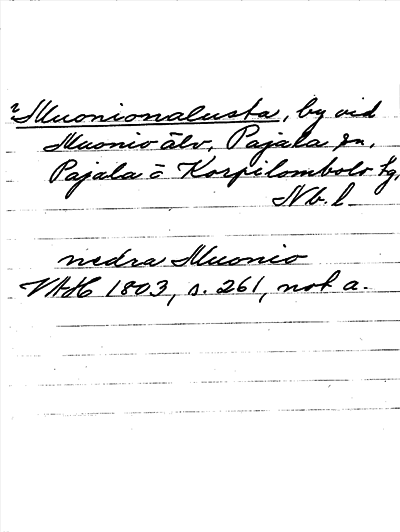 Muonionalusta, by vid
Muonio älv, Pajala sn,
Pajala o Korpilombolo tg,
Nb. l.
nedra Muonio
VAH 1803, s. 261, not a.